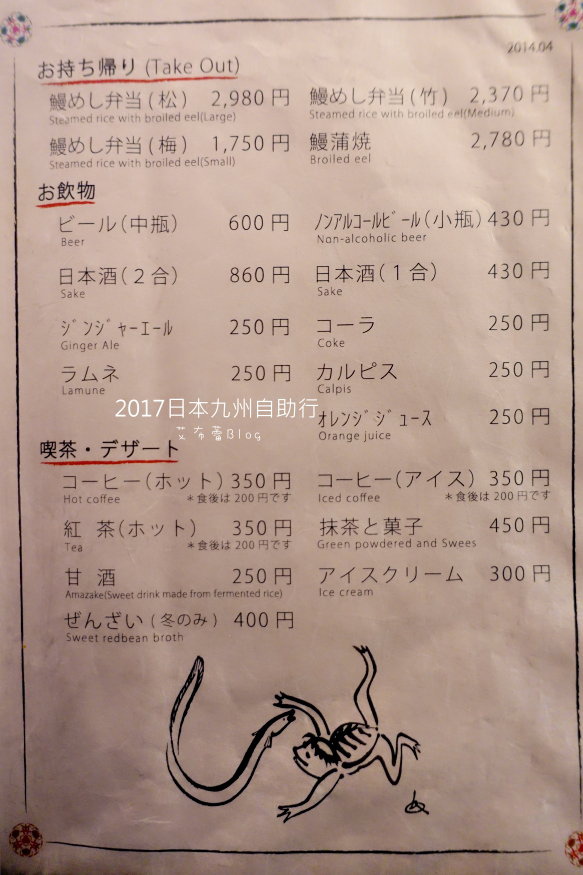 2014.04
お持ち帰り (Take Out)
鰻めし弁当(松) 2,980円 鰻めし弁当(竹) 2,370円
Steamed rice with broiled eel(Large) Steamed rice with broiled eel(Medium)
鰻めし弁当(梅) 1,750円 鰻蒲焼 2,780円
Steamed rice with broiled eel(Small) Broiled eel
お飲物
ビール(中瓶) 600円 ﾉﾝｱﾙｺｰﾙﾋﾞｰﾙ(小瓶) 430円
Beer Non-alcoholic beer
日本酒(2合) 860円 日本酒(1合) 430円
Sake Sake
ｼﾞﾝｼﾞｬｰｴｰﾙ 250円 コーラ 250円
Ginger Ale Coke
ラムネ 250円 カルピス 250円
Lamune Calpis
2017日本九州自助行
オレンジｼﾞｭｰｽ 250円
Orange juice
艾布蕾Blog
喫茶・デザート
コーヒー(ホット) 350円 コーヒー(アイス) 350円
Hot coffee *食後は200円です Iced coffee *食後は200円です
紅茶(ホット) 350円 抹茶と菓子 450円
Tea *食後は200円です Green powdered and Swees
甘酒 250円 アイスクリーム 300円
Amazake(Sweet drink made from fermented rice) Ice cream
ぜんざい(冬のみ) 400円
Sweet redbean broth